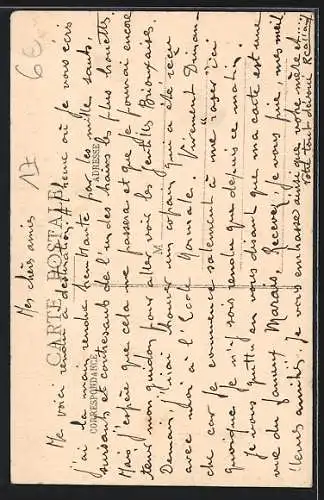 6€
17
CARTE POSTALE
CORRESPONDANCE
ADRESSE
M
Mes chers amis
Me voici rendu à destination. A l'heure où je vous écris
j'ai la main rendue tremblante par les mille sauts,
sursauts et contresauts de l'un des trains les plus chouettes.
Mais j'espère que cela me passera et que je pourrai encore
tenir mon guidon pour aller voir les gentilles Brionnaises.
Demain, j'irai trouver un copain qui a été reçu
avec moi à l'Ecole Normale. Vivement Diman-
che car je commence salement à me raser ici
quoique je n'y sois rendu que depuis ce matin.
Je vous quitte en vous disant que ma carte est une
vue du fameux Marais, Recevez, je vous prie, mes meil-
leures amitiés. Je vous embrasse ainsi que votre mère et...
Votre tout dévoué